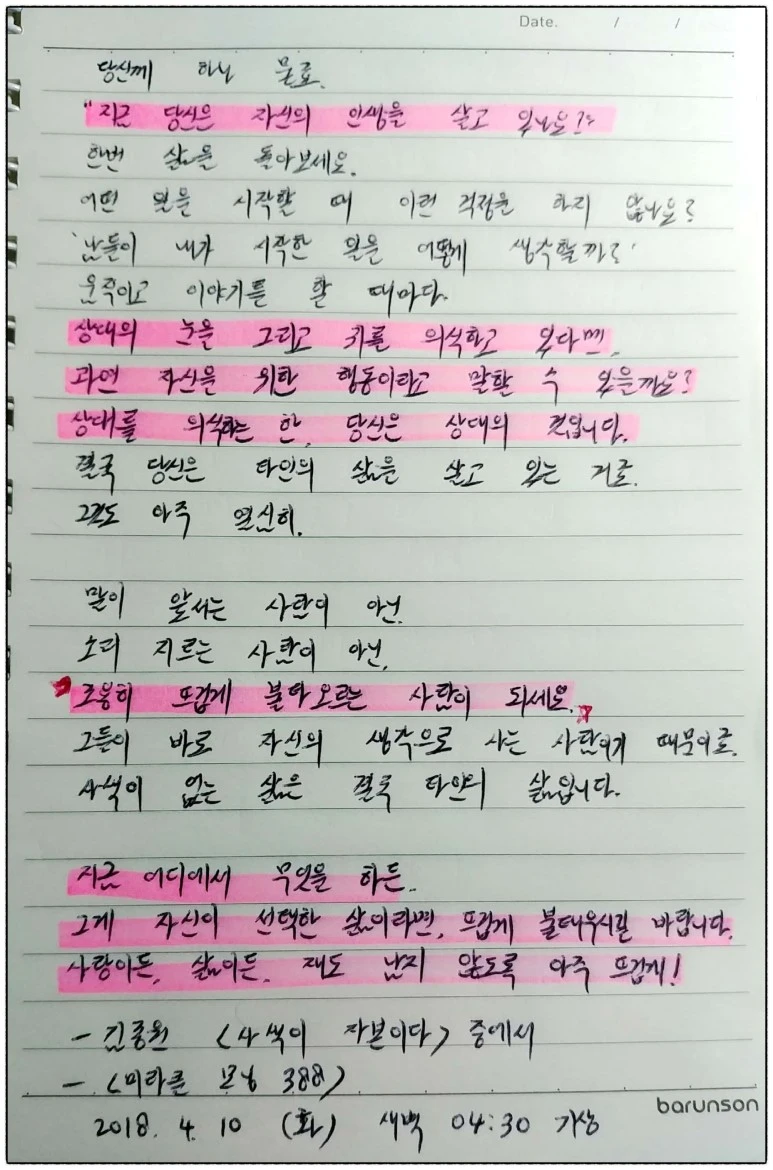 Date. / /
당신께 하닌 물료.
"지금 당신은 자신의 인생을 살고 있나요?"
한번 삶을 돌아보세요.
어떤 일을 시작할 때 이런 걱정을 하지 않나요?
'남들이 내가 시작한 일을 어떻게 생각할까?'
움직이고 이야기를 할 때마다.
상대의 눈을 그리고 귀를 의식하고 있다면,
과연 자신을 위한 행동이라고 말할 수 있을까요?
상대를 의식하는 한, 당신은 상대의 것입니다.
결국 당신은 타인의 삶을 살고 있는 거죠.
그것도 아주 열심히.
말이 앞서는 사람이 아닌,
소리 지르는 사람이 아닌,
조용히 뜨겁게 불타오르는 사람이 되세요.
그들이 바로 자신의 생각으로 사는 사람이기 때문이죠.
사색이 없는 삶은 결국 타인의 삶입니다.
지금 어디에서 무엇을 하든.
그게 자신이 선택한 삶이라면, 뜨겁게 불태우시길 바랍니다.
사랑이든, 삶이든, 재도 남지 않도록 아주 뜨겁게!
- 김종원 <사색이 자본이다> 중에서
- <미라클 모닝 388>
barunson
2018. 4. 10 (화) 새벽 04:30 기상